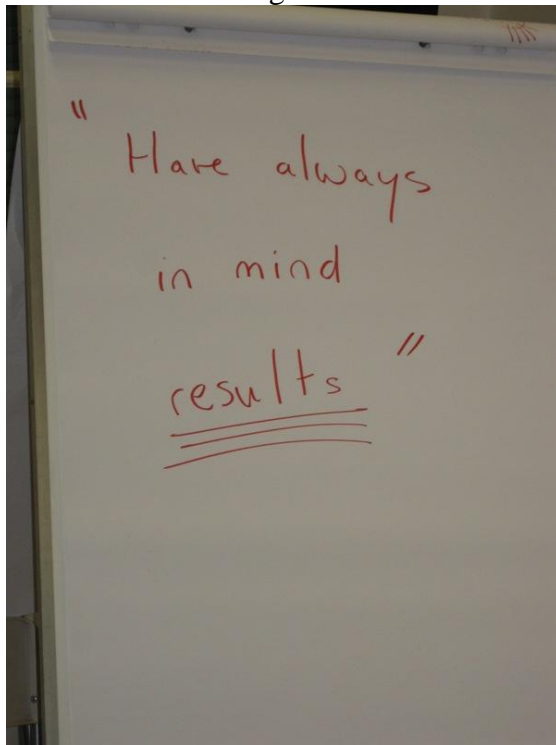 " Have always
in mind
results "